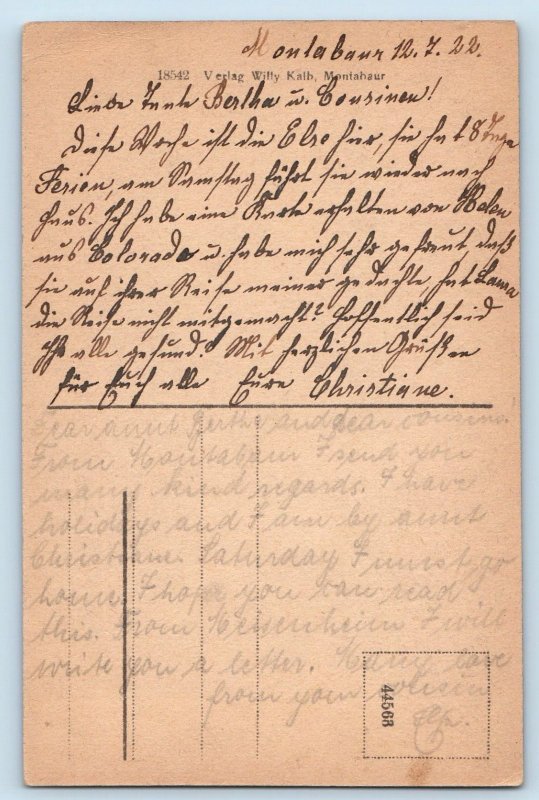 Montabaur 12.7.22.
18542 Verlag Willy Kalb, Montabaur
Liebe Tante Bertha u. Cousinen!
Diese Woche ist die Else hier, sie hat 8 Tage
Ferien, am Samstag fährt sie wieder nach
Haus. Ich habe eine Karte erhalten von Helen
aus Colorado u. habe mich sehr gefreut, daß
sie auf ihrer Reise meiner gedachte, hat Laura
die Reise nicht mitgemacht? Hoffentlich seid
Ihr alle gesund. Mit herzlichen Grüßen
für Euch alle Eure Christiane.
Dear aunt Bertha and dear cousins.
From Montabaur I send you
many kind regards. I have
holidays and I am by aunt
Christiane. Saturday I must go
home. I hope you can read
this. From Meisenheim I will
write you a letter. Many love
from your cousin
44568